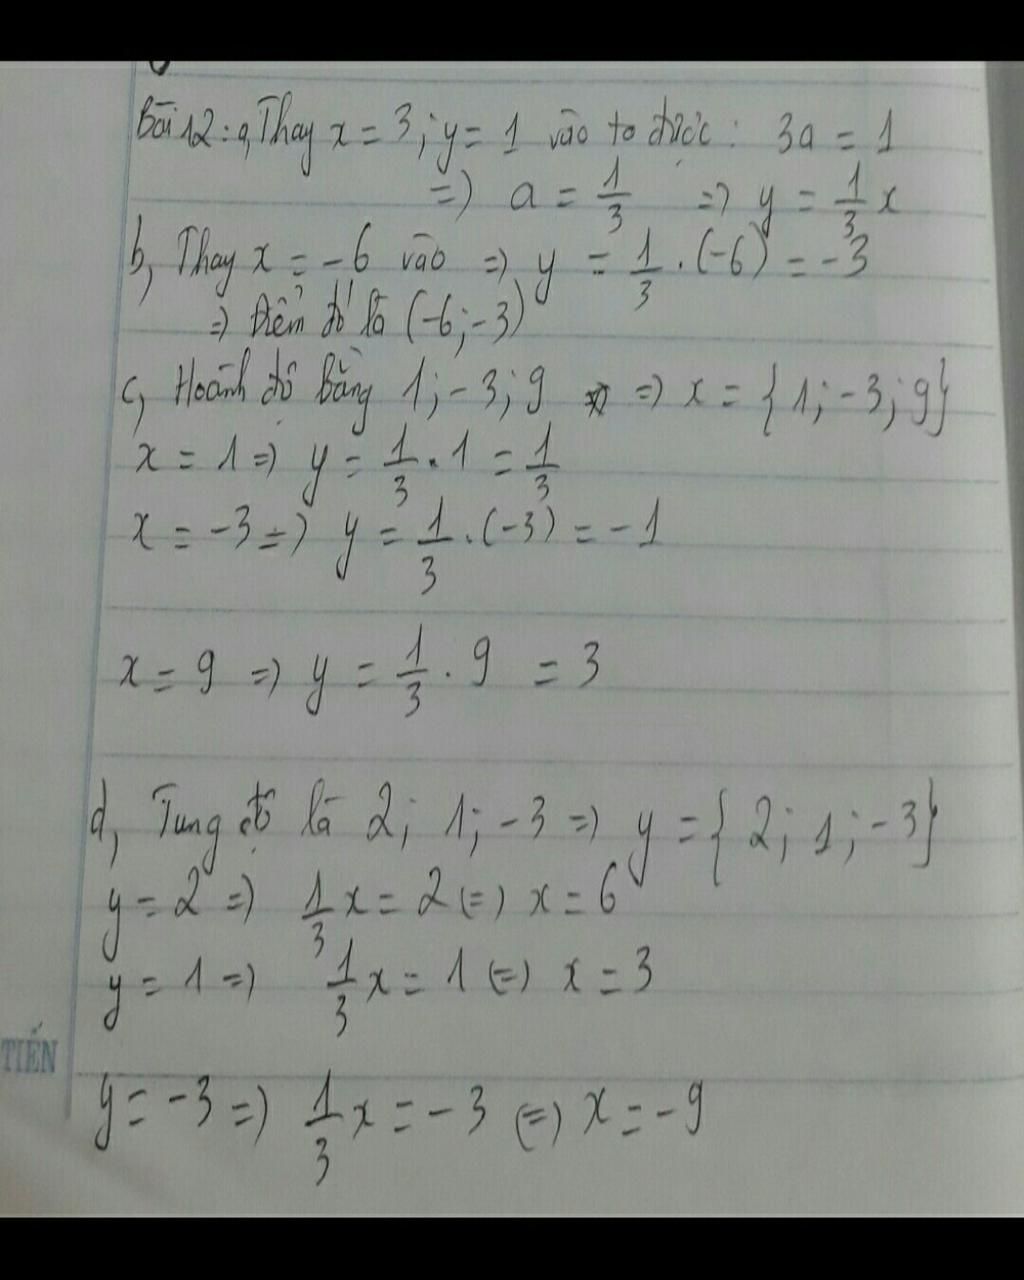 Bài 12: a, Thay x = 3; y = 1 vào ta được: 3a = 1
=> a = 1/3 => y = 1/3 x
b, Thay x = -6 vào => y = 1/3 . (-6) = -3
=> Điểm đó là (-6; -3)
c, Hoành độ bằng 1; -3; 9 => x = {1; -3; 9}
x = 1 => y = 1/3 . 1 = 1/3
x = -3 => y = 1/3 . (-3) = -1
x = 9 => y = 1/3 . 9 = 3
d, Tung độ là 2; 1; -3 => y = {2; 1; -3}
y = 2 => 1/3 x = 2 (=) x = 6
y = 1 => 1/3 x = 1 (=) x = 3
TIẾN
y = -3 => 1/3 x = -3 (=) x = -9